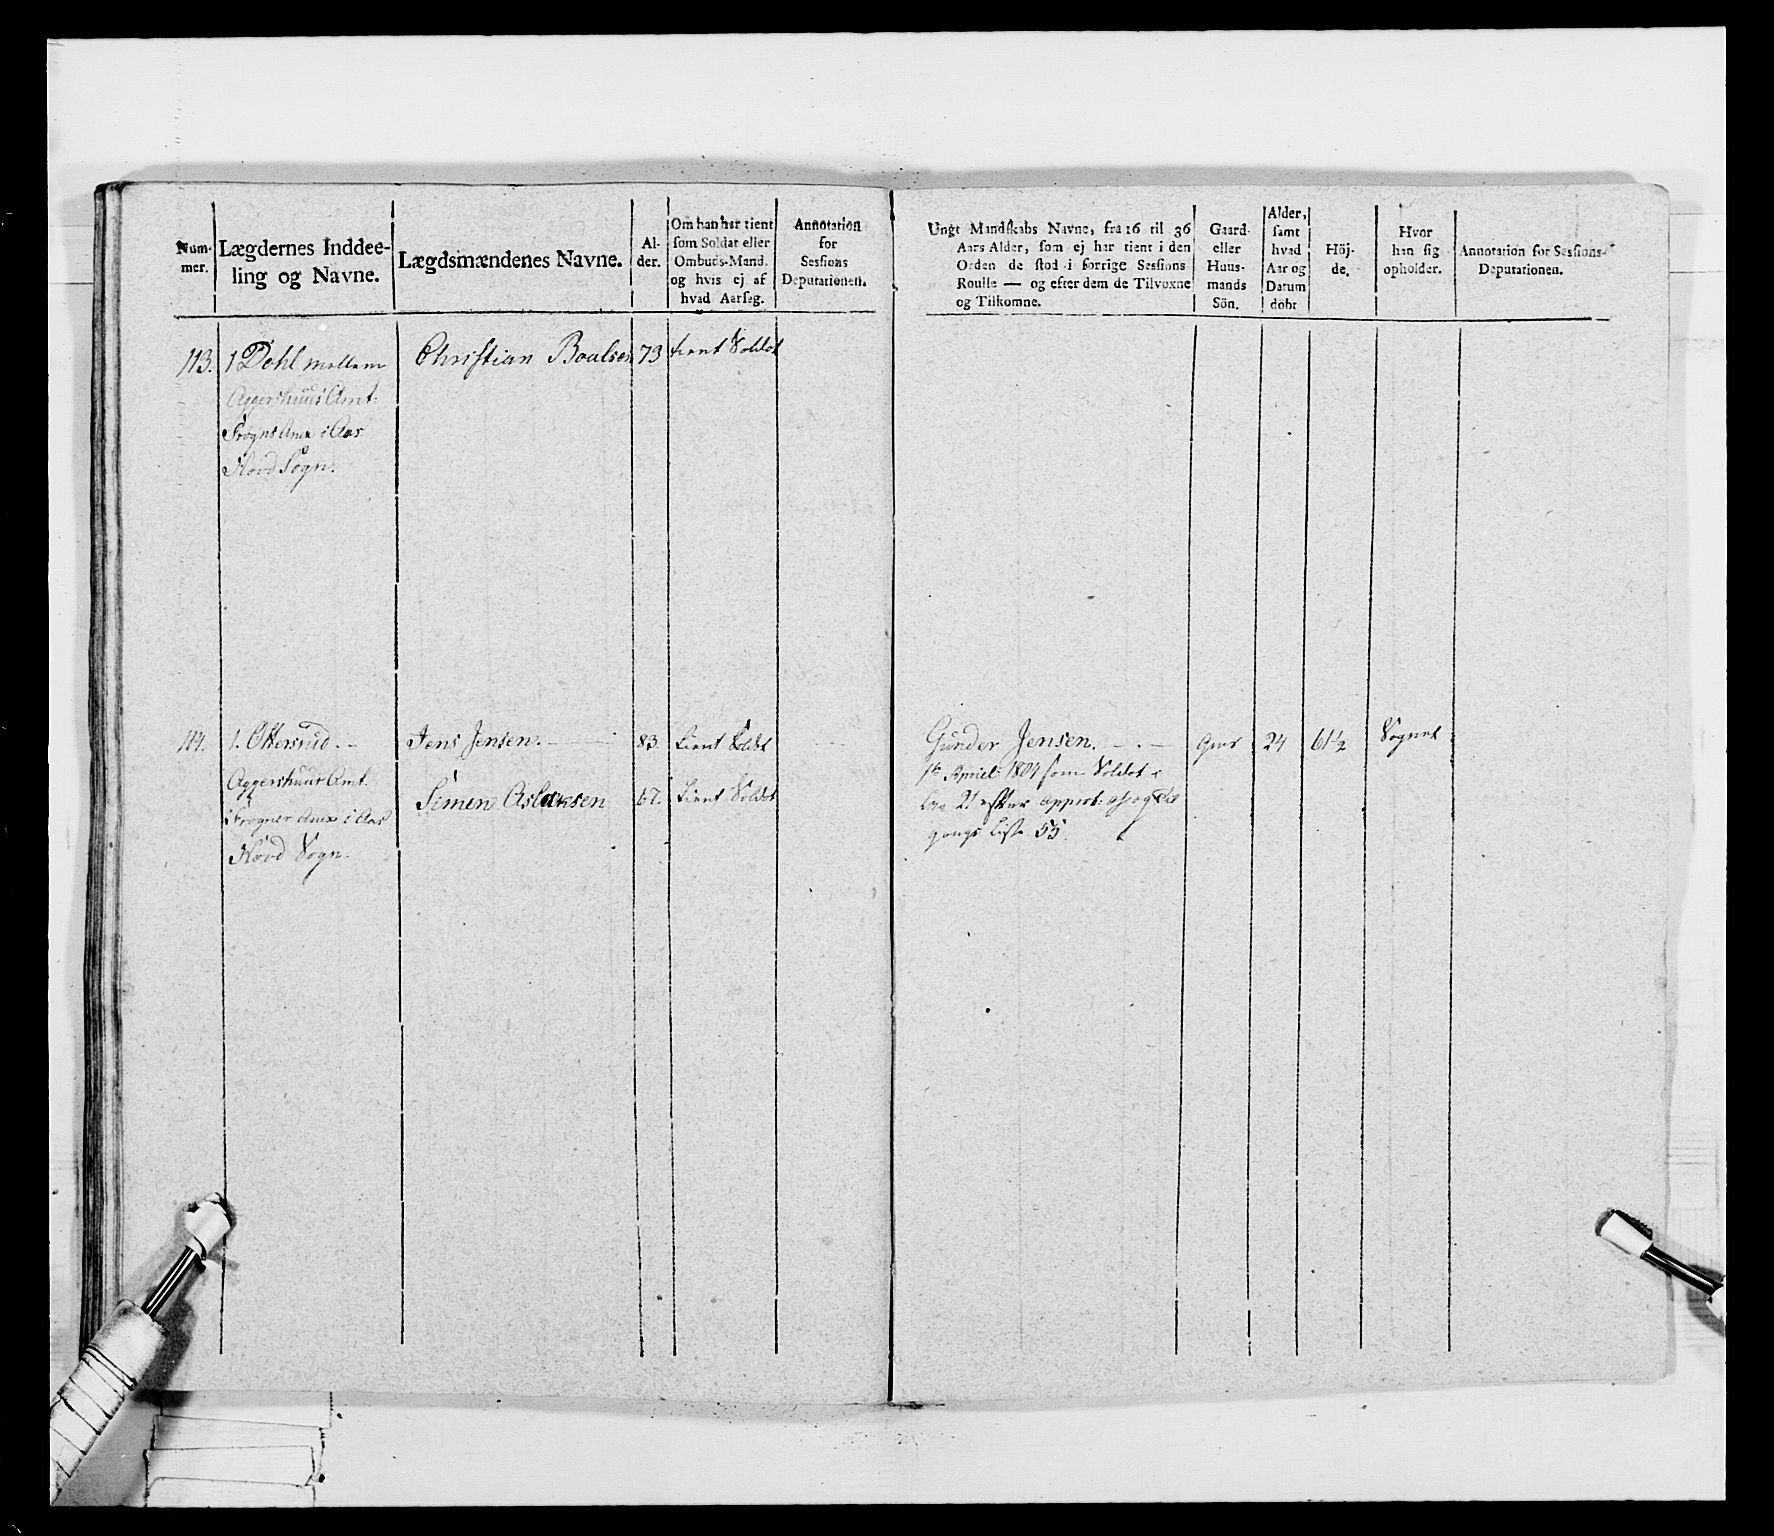 Num-
mer.
Lægdernes Inddee-
ling og Navne.
Lægdsmændenes Navne.
Al-
der.
Om han har tient
som Soldat eller
Ombuds-Mand,
og hvis ej af
hvad Aarsag.
Annotation
for
Sessions
Deputationen.
Ungt Mandskabs Navne, fra 16 til 36
Aars Alder, som ej har tient i den
Orden de stod i forrige Sessions
Roulle — og efter dem de Tilvoxne
og Tilkomne.
Gaard-
eller
Huus-
mands
Sön.
Alder,
samt
hvad
Aar og
Datum
döbt
Höj-
de.
Hvor
han sig
opholder.
Annotation for Sessions-
Deputationen.
113. 1 Dehl mellem Christian Boulsen 73 tient Soldat
Aggershuus Amt
Frogns Anex i Aas
Hovd Sogn.
114. 1. Ottersrud. Jens Jensen. 83. tient Soldat Gunder Jensen. 24 61½ Sognet
Aggershuus Amt. Simen Aslaksen 67. tient Soldat 1te April 1804 som Soldat
i Frogner Anex i Aas 21 efter approb: af og Til
Hovd Sogn. gangs Liste 55.